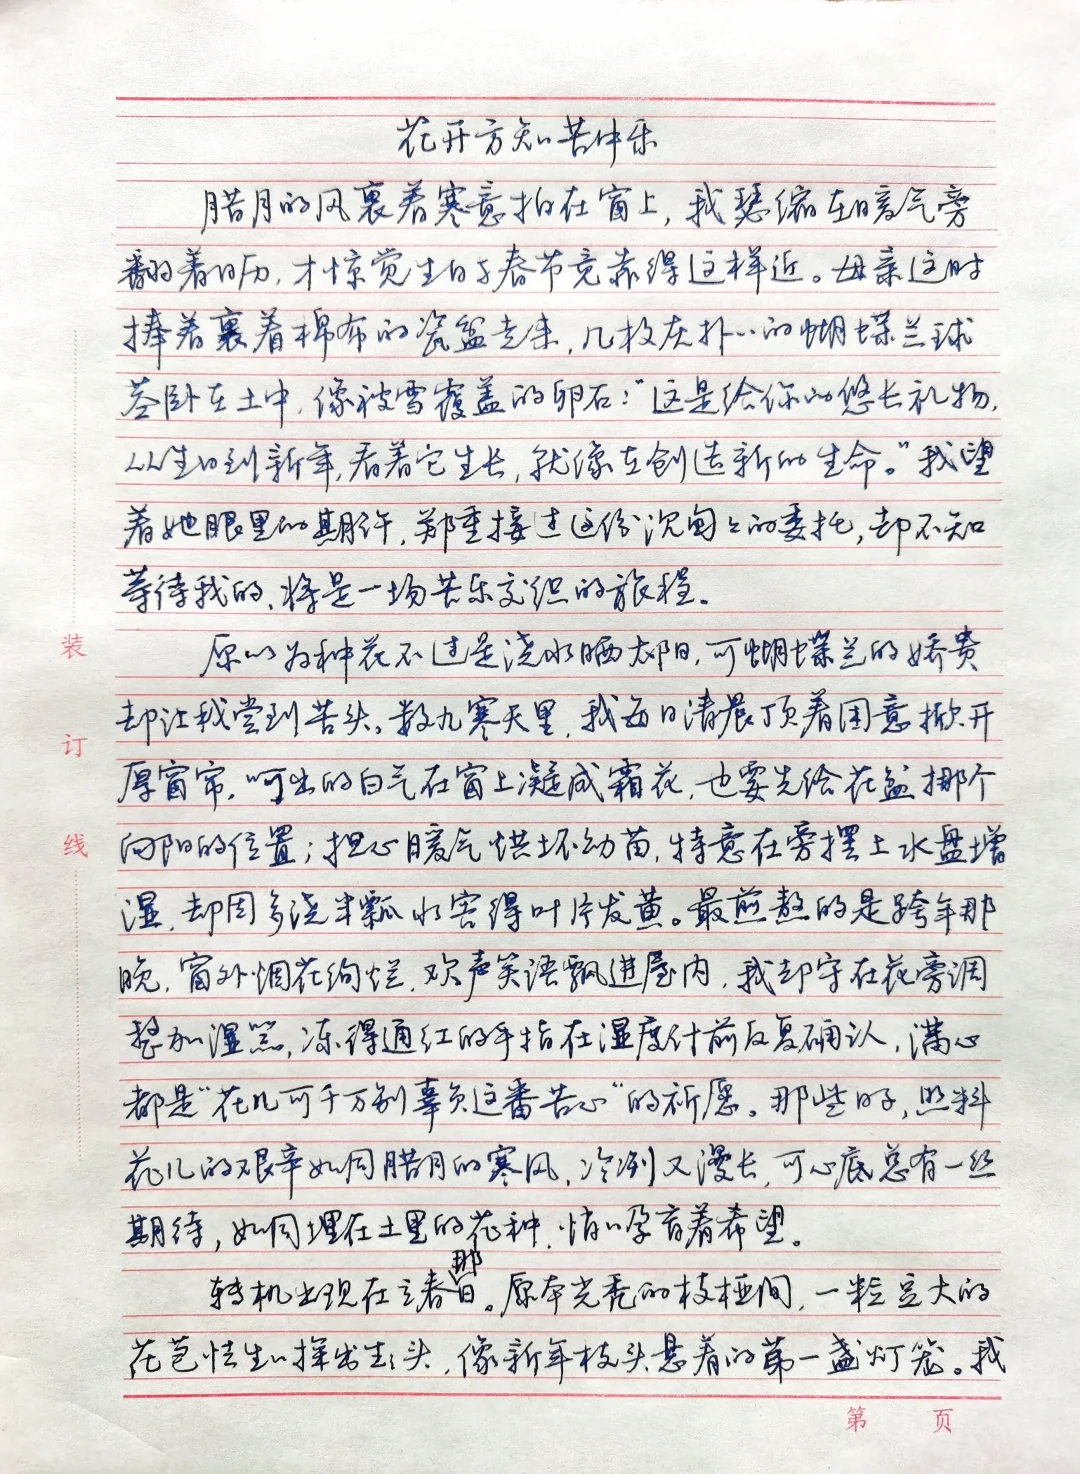 花开方知苦中乐
腊月的风裹着寒意拍在窗上，我瑟缩在暖气旁
翻着日历，才惊觉生日与春节竟靠得这样近。母亲这时
捧着裹着棉布的瓷盆走来，几枚灰扑扑的蝴蝶兰球
茎卧在土中，像被雪覆盖的卵石：“这是给你的悠长礼物，
从生日到新年，看着它生长，就像在创造新的生命。”我望
着她眼里的期许，郑重接过这份沉甸甸的委托，却不知
等待我的，将是一场苦乐交织的旅程。
原以为种花不过是浇水晒太阳，可蝴蝶兰的娇贵
却让我尝到苦头。数九寒天里，我每日清晨顶着困意掀开
厚窗帘，呵出的白气在窗上凝成霜花，也要先给花盆挪个
向阳的位置；担心暖气烘坏幼苗，特意在旁摆上水盘增
湿，却因多浇半瓢水害得叶片发黄。最煎熬的是跨年那
晚，窗外烟花绚烂，欢声笑语飘进屋内，我却守在花旁调
整加湿器，冻得通红的手指在湿度计前反复确认，满心
都是“花儿可千万别辜负这番苦心”的祈愿。那些日子，照料
花儿的艰辛如同腊月的寒风，冷冽又漫长，可心底总有一丝
期待，如同埋在土里的花种，悄悄孕育着希望。
转机出现在立春那日。原本光秃的枝桠间，一粒豆大的
花苞怯生生探出头，像新年枝头悬着的第一盏灯笼。我
装
订
线
第 页